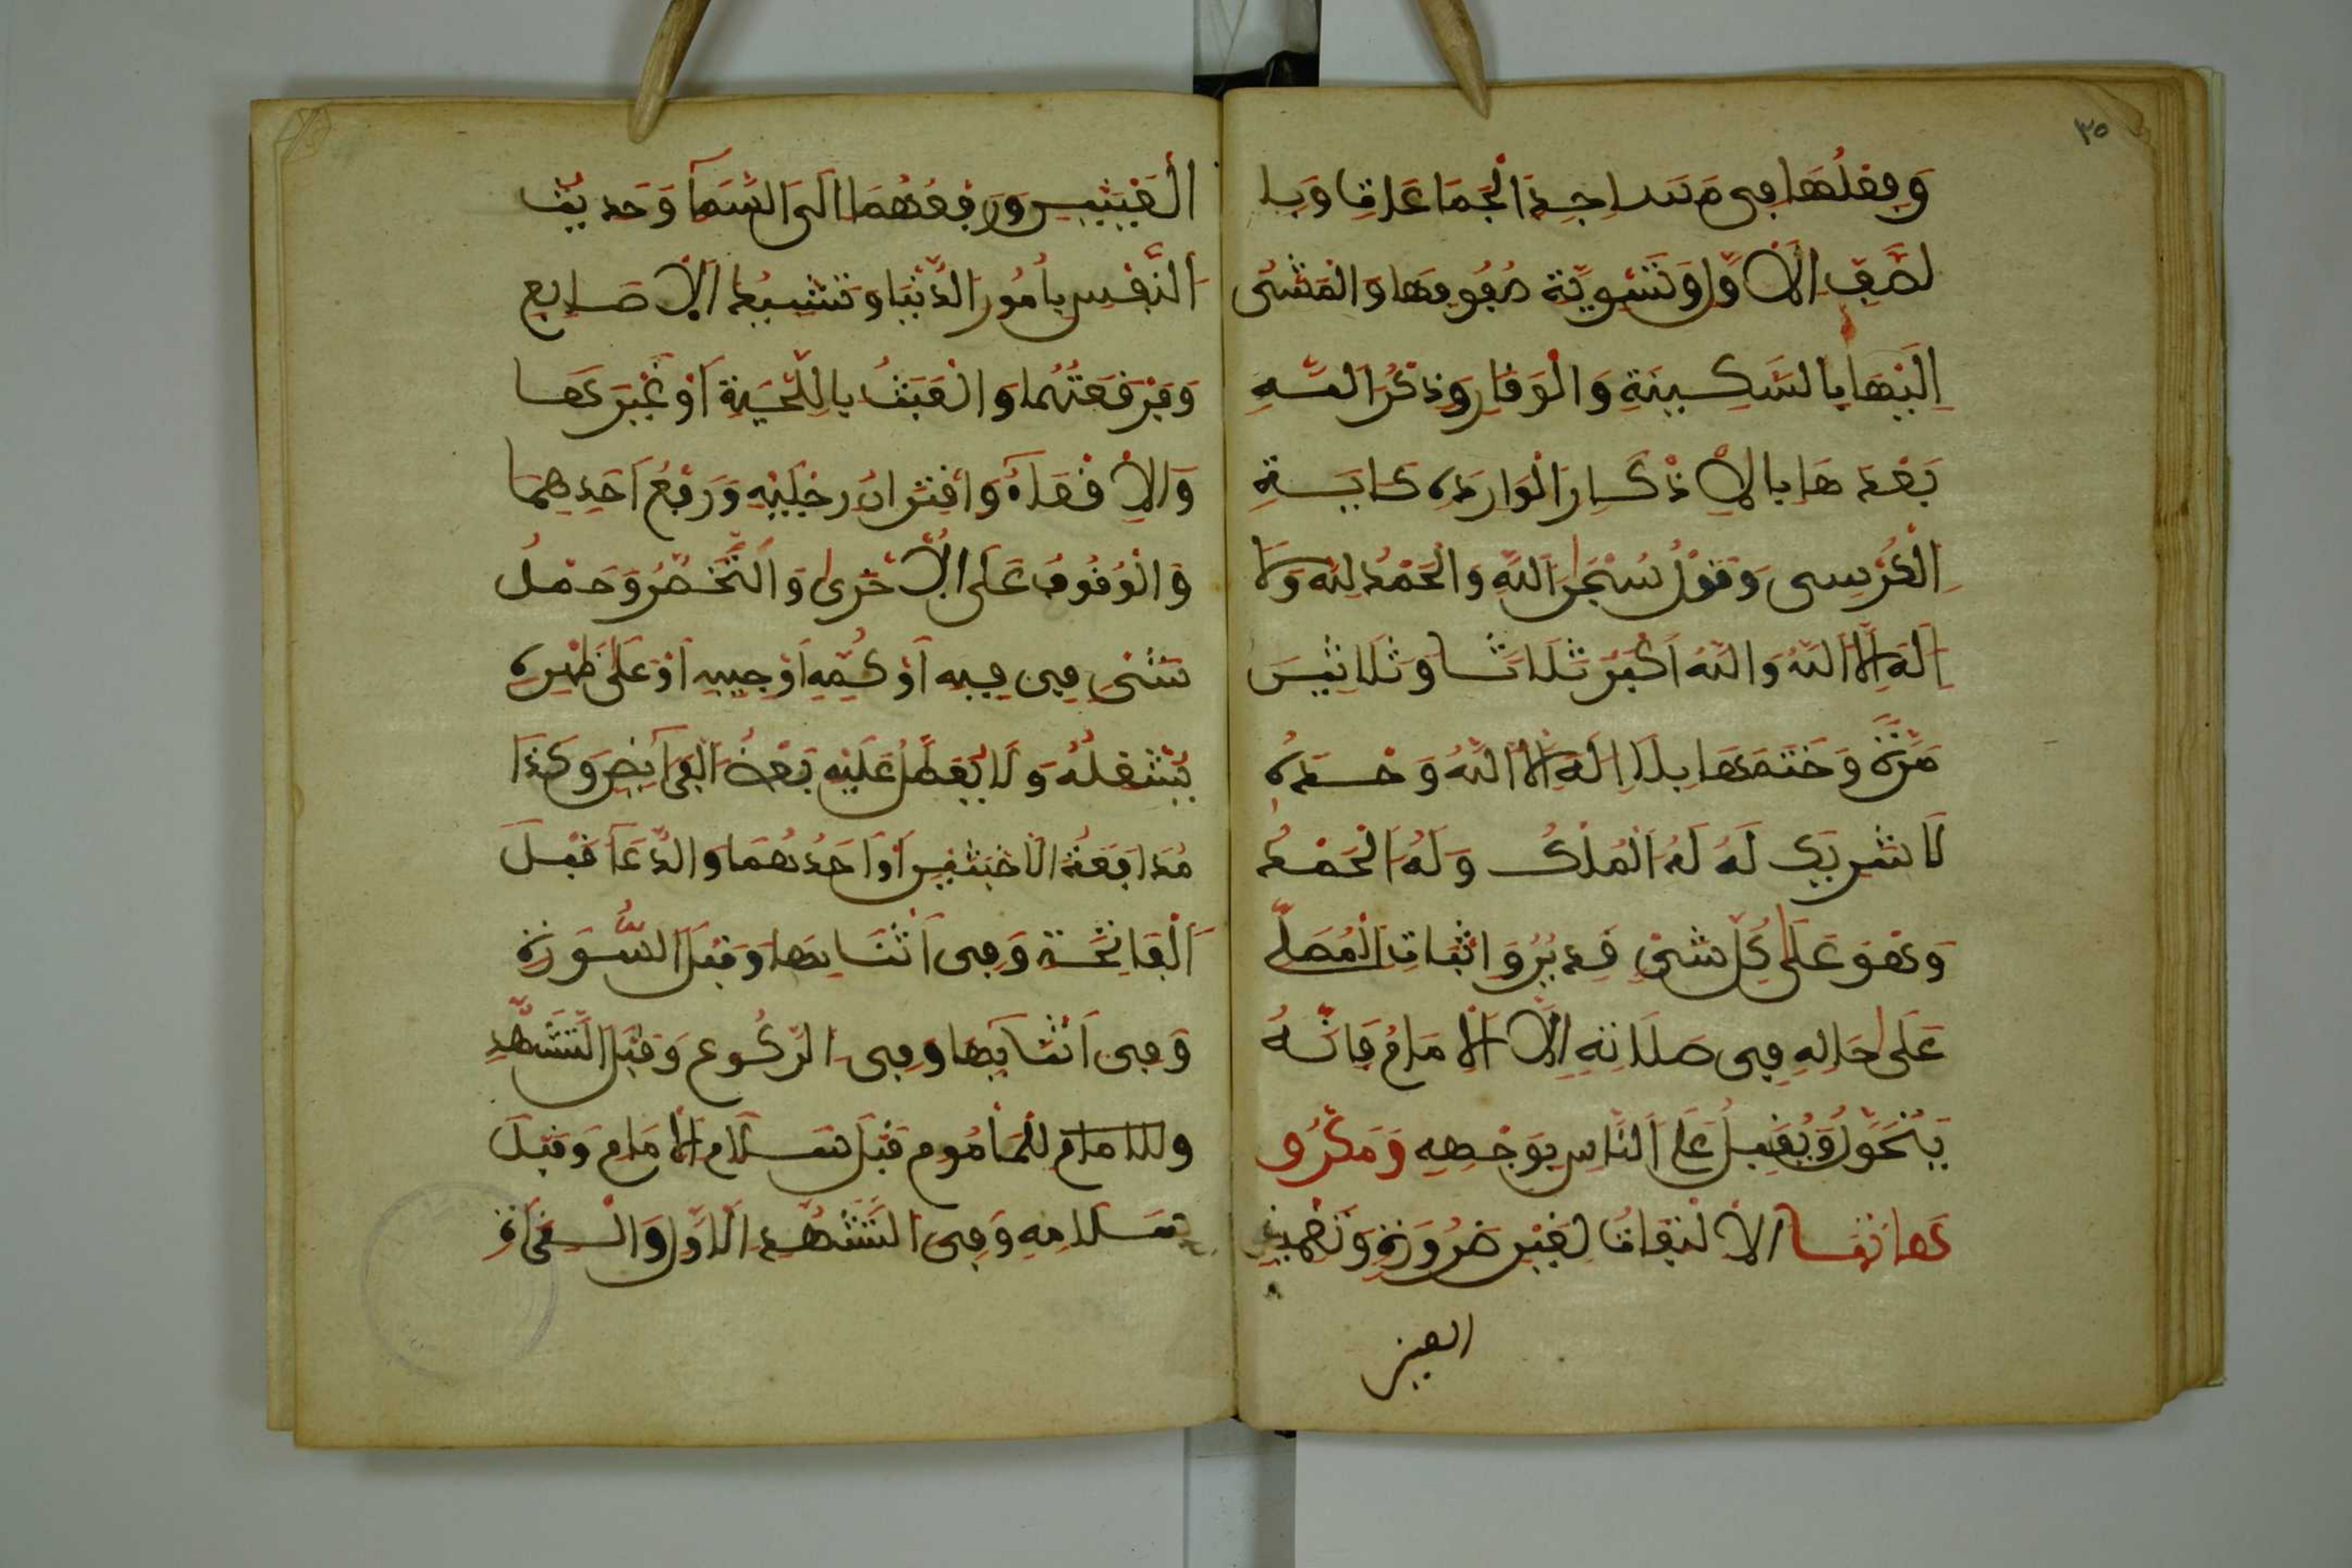 ٣٥
وَفِعْلُهَا فِى مَسَاجِدِ الْجَمَاعَاتِ وَبِا
لصَّفِ الْأَوَّلِ وَتَسْوِيَّة صُفُوفِهَا وَالْمَشْىُ
اِلَيْهَا بِالسَّكِينَةِ وَالْوَقَارِ وَذِكْرُ اللَّهِ
بَعْدهَا بِالْأَذْكَارِ الْوَارِدَه كَايَةِ
الْكُرْسِى وَقَوْلُ سُبْحَانَ اللَّهِ وَالْحَمْدُ لِلَّهِ وَلَا
اِلَهَ اِلَّا اللَّهُ وَاللَّهُ اَكْبَرُ ثَلَاثًا وَثَلَاثِينَ
مَرَّةً وَخَتمهَا بِلَا اِلَهَ اِلَّا اللَّهُ وَحْدَهُ
لَا شَرِيكَ لَهُ لَهُ الْمُلْكُ وَلَهُ الْحَمْدُ
وَهُوَ عَلَى كُلِّ شَىْءٍ قَدِيرُ وَاثْبَاتِ الْمُصَلِّى
عَلَى حَالِهِ فِى صَلَاتِهِ اِلَّا الْاِمَامُ فَاِنَّهُ
يَتَحَوَّلُ وَيُقْبِلُ عَلَى النَّاسِ بِوَجْهِهِ وَمَكْرُو
هَاتهَا الْاِلْتِفَاتُ لِغَيْرِ ضَرُورَةٍ وَتَغْمِيضُ
العين
الْعَيْنَيْنِ وَرَفْعُهُمَا اِلَى السَّمَآ وَحَدِيثُ
النَّفْسِ بِاُمُورِ الدُّنْيَا وَتَشْبِيكُ الْاَصَابِعِ
وَفَرْقَعَتُهُمَا وَالْعَبَثُ بِاللِّحْيَةِ اَوْ غَيْرِهَا
وَالْاِقْعَآءُ وَاقْتِرَانُ رِجْلَيْهِ وَرَفْعُ اَحَدِهِمَا
وَالْوُقُوفُ عَلَى الْاُخْرَى وَالتَّخَصُّرُ وَحَمْلُ
شَىْءٍ فِى فِيهِ اَوْ كُمِّهِ اَوْ جَيْبِهِ اَوْ عَلَى ظَهْرِهِ
يُشْغِلُهُ وَلَا يُعَطِّلُ عَلَيْهِ بَعْضَ الْفَرَآيِضِ وَكَذَا
مُدَافَعَةُ الْاَخْبَثَيْنِ اَوْ اَحَدُهُمَا وَالدُّعَآ قَبْلَ
الْفَاتِحَةِ وَفِى اَثْنَايِهَا وَقَبْلَ السُّورَةِ
وَفِى اَثْنَايِهَا وَفِى الرُّكُوعِ وَقَبْلَ التَّشَهُّدِ
وللامام للمَأموم قَبْلَ سَلَامِ الْاِمَامِ وَقَبْلَ
سَلَامِهِ وَفِى التَّشَهُّدِ الْاَوَّلِ وَالْقِرَآةُ